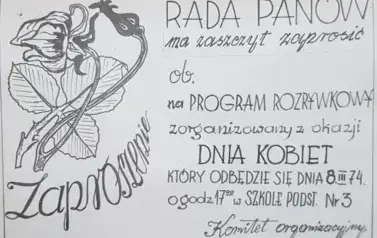 Zaproszenie
RADA PANÓW
ma zaszczyt zaprosić
ob.
na PROGRAM ROZRYWKOWY
zorganizowany z okazji
DNIA KOBIET
KTÓRY ODBĘDZIE SIĘ DNIA 8 III 74.
o godz 17⁰⁰ w SZKOLE PODST. Nr 3
Komitet organizacyjny